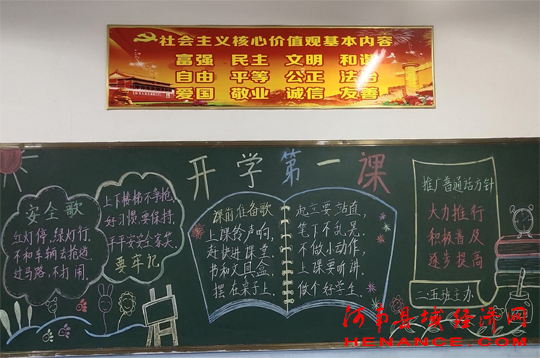 社会主义核心价值观基本内容
富强 民主 文明 和谐
自由 平等 公正 法治
爱国 敬业 诚信 友善
开学第一课
安全歌
红灯停,绿灯行,
不和车辆去抢道
过马路,不打闹,
上下楼梯不争抢,
好习惯,要保持,
要牢记
课前准备歌
上课铃声响,
赶快进课堂
书和文具盒,
摆在桌子上,
起立要站直,
不做小动作,
上课要听讲,
做个好学生.
推广普通话方针
大力推行
积极普及
逐步提高
河南县域经济网
HENANCE.COM